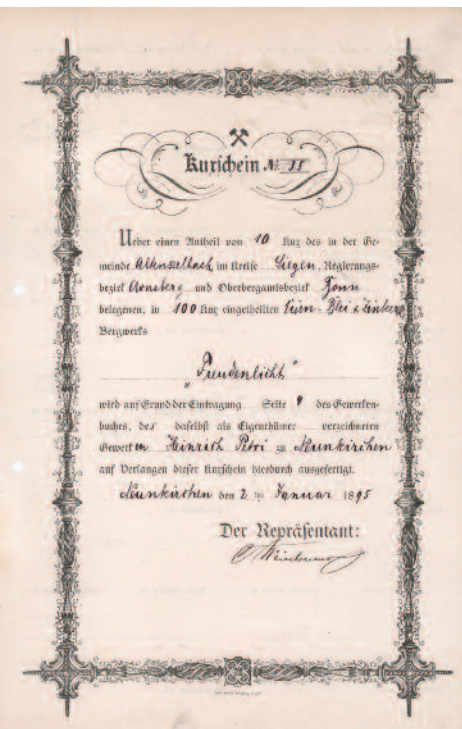 Kuxschein № 11
Ueber einen Antheil von 10 Kux des in der Ge-
meinde Altenseelbach im Kreise Siegen, Regierungs-
bezirk Arnsberg und Oberbergamtsbezirk Bonn
belegenen, in 100 Kux eingetheilten Eisen- Blei & Zinkerz
Bergwerks
„Freudenlicht"
wird auf Grund der Eintragung Seite 9 des Gewerken-
buches, des daselbst als Eigenthümer verzeichneten
Gewerken Heinrich Petri zu Neunkirchen
auf Verlangen dieser Kuxschein hierdurch ausgefertigt.
Neunkirchen den 2 ten Januar 1895
Der Repräsentant: